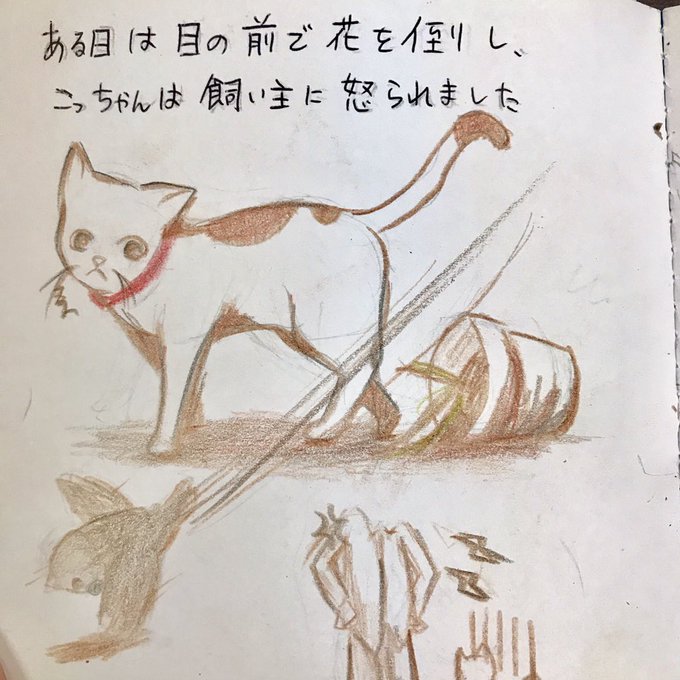 ある日は目の前で花を倒し、
こっちゃんは飼い主に怒られました